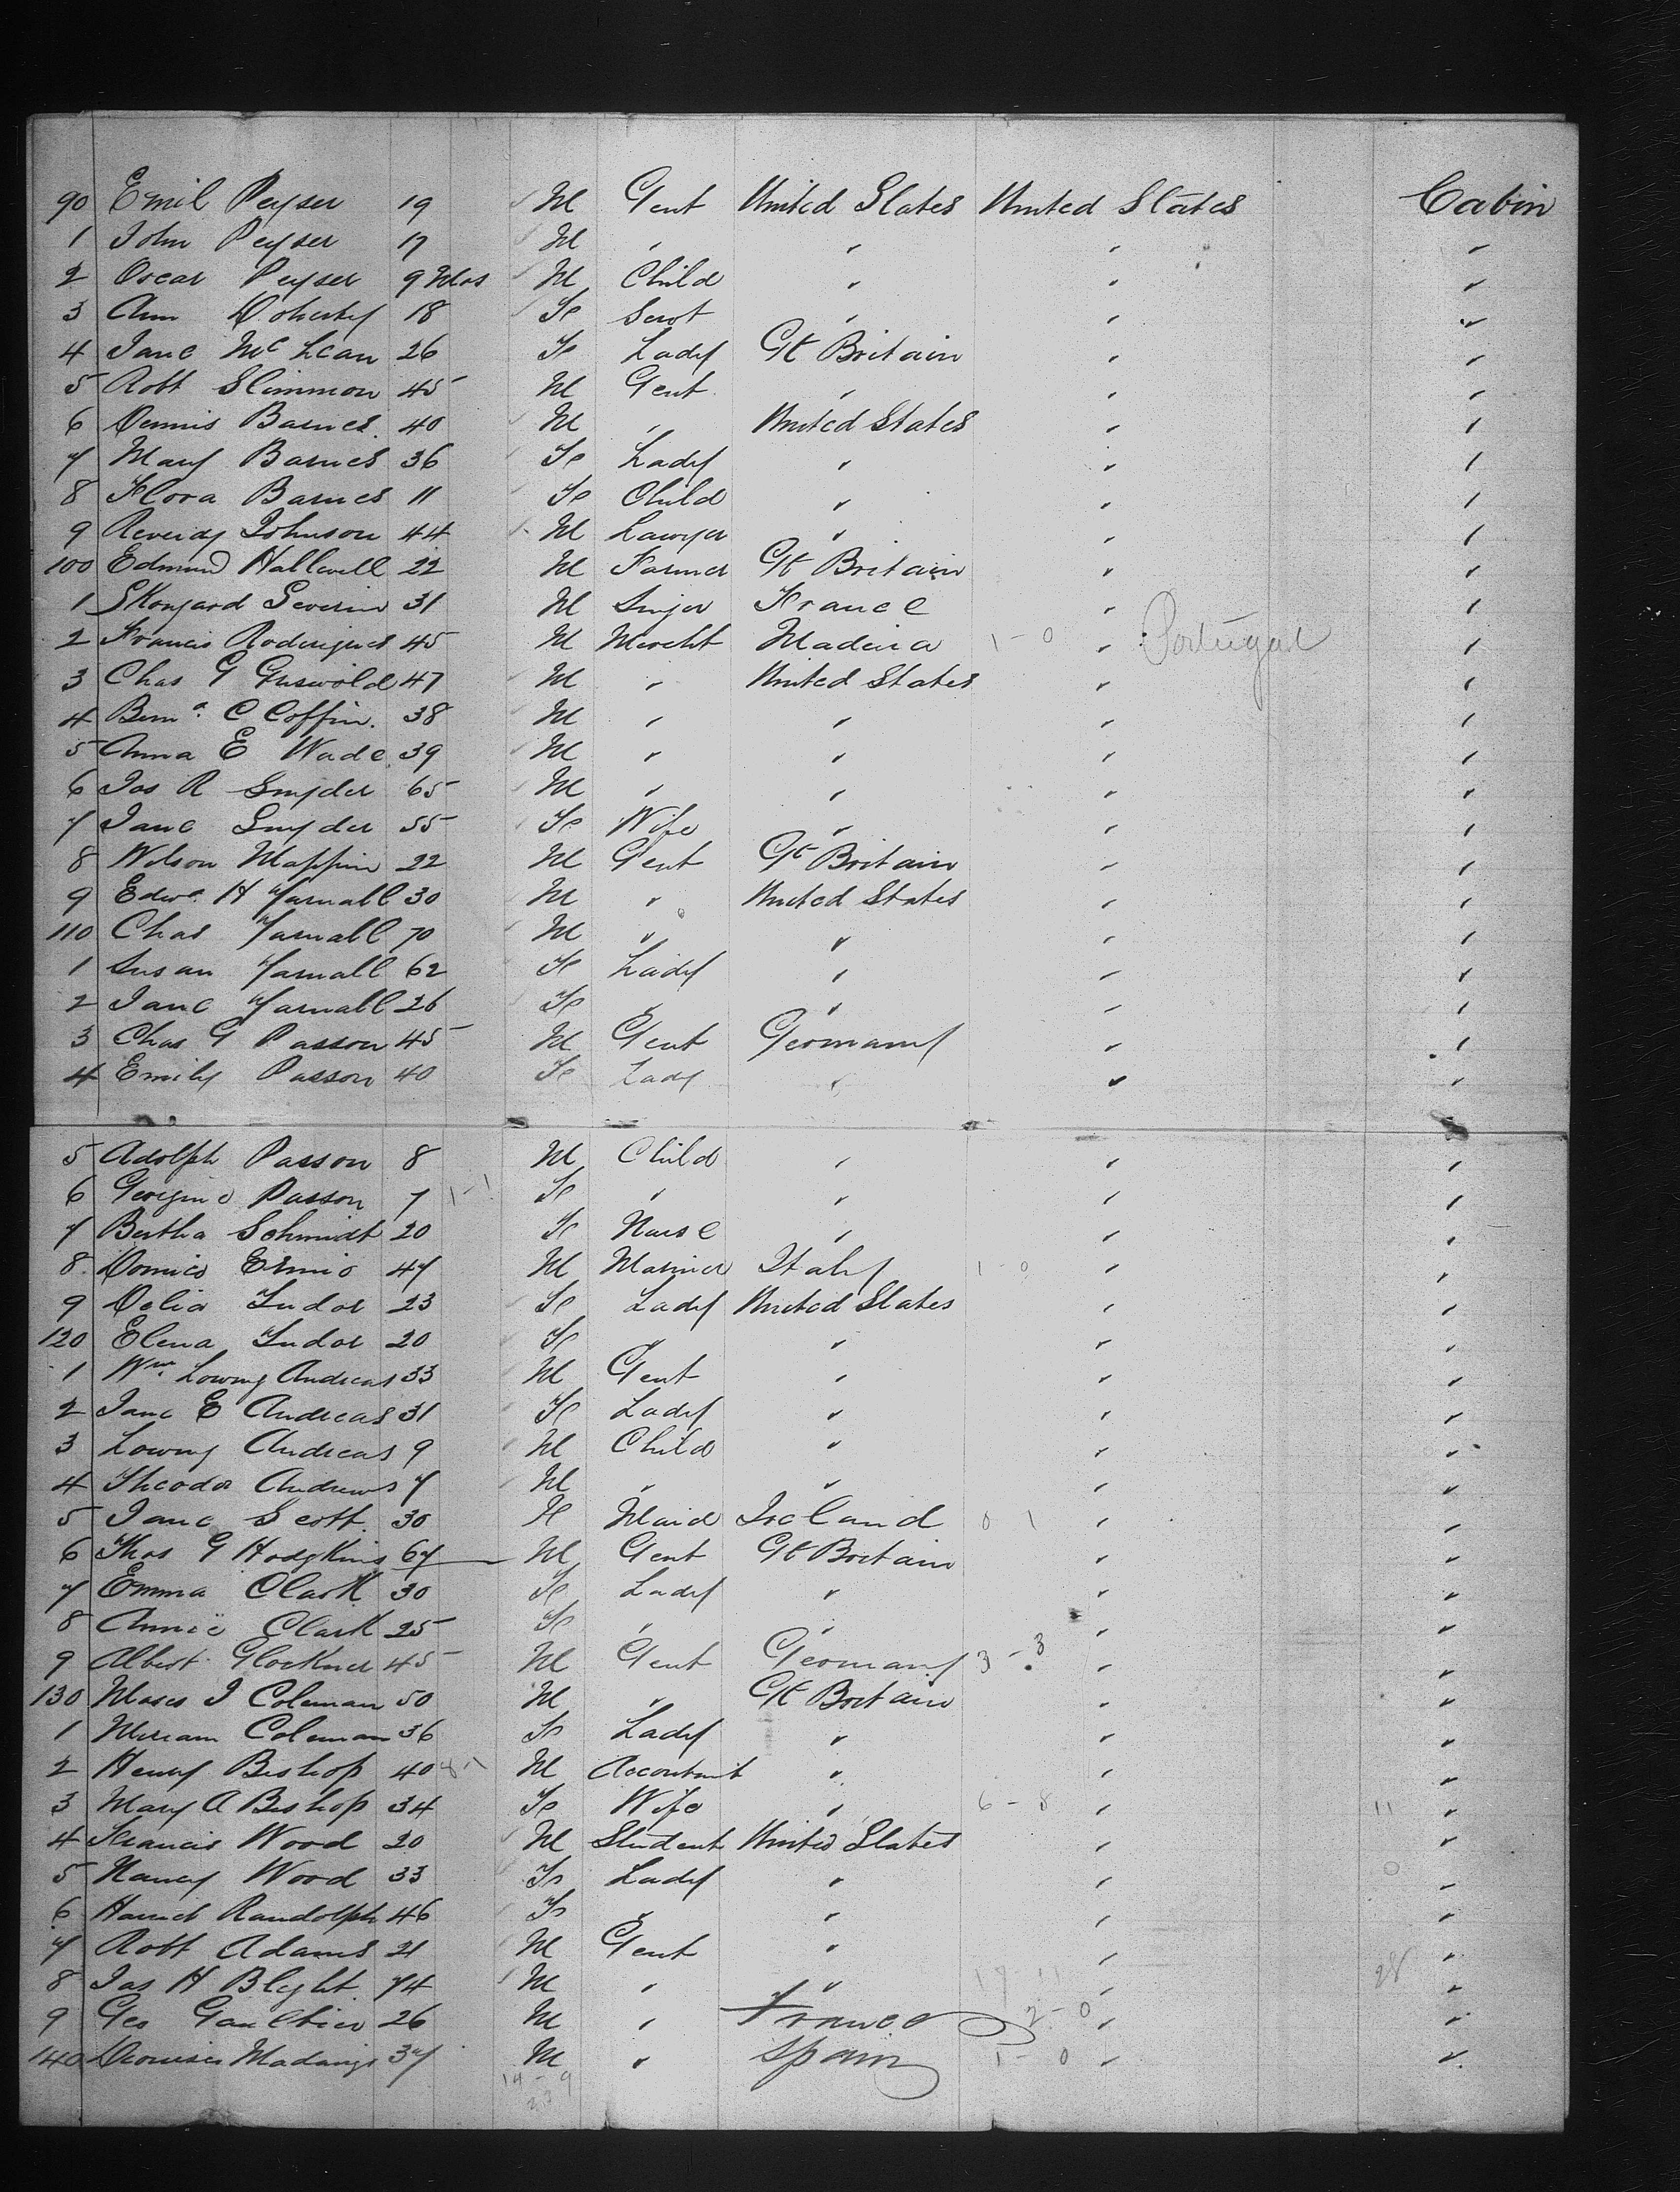 90 Emil Peyser 19 M Gent United States United States Cabin
1 John Peyser 17 M " " " "
2 Oscar Peyser 9 Mos M Child " " "
3 Ann Doherty 18 Fe Servt " " "
4 Jane McLean 26 Fe Lady Gt Britain " "
5 Robt Slimmon 45 M Gent " " "
6 Dennis Barnes 40 M " United States " "
7 Mary Barnes 36 Fe Lady " " "
8 Flora Barnes 11 Fe Child " " "
9 Reverdy Johnson 44 M Lawyer " " "
100 Edmund Hallewell 22 M Farmer Gt Britain " "
1 Skongard Severin 31 M Singer France " "
2 Francis Roderigues 45 M Mercht Madeira 1-0 " Portugal "
3 Chas G Griswold 47 M " United States " "
4 C Coffin 38 M " " " "
5 Anna E Wade 39 M " " " "
6 Jas R Snyder 65 M " " " "
7 Jane Snyder 55 Fe Wife " " "
8 Wilson Mappin 22 M Gent Gt Britain " "
9 Edwd H Yarnall 30 M " United States " "
110 Chas Yarnall 70 M " " " "
1 Susan Yarnall 62 Fe Lady " " "
2 Jane Yarnall 26 Fe " " " "
3 Chas G Passon 45 M Gent Germany " "
4 Emily Passon 40 Fe Lady " " "
5 Adolph Passon 8 M Child " " "
6 Georgine Passon 7 1-1 Fe " " " "
7 Bertha Schmidt 20 Fe Nurse " " "
8 47 M Mariner Italy 1-0 " "
9 Delia Tudor 23 Fe Lady United States " "
120 Elena Tudor 20 Fe " " " "
1 Wm Lowing Andreas 33 M Gent " " "
2 Jane E Andreas 31 Fe Lady " " "
3 Lowing Andreas 9 M Child " " "
4 Theodor Andrews 7 M " " " "
5 Jane Scott 30 Fe Maid Ireland 0 1 " "
6 Thos G Hodgkins 67 M Gent Gt Britain " "
7 Emma Clark 30 Fe Lady " " "
8 Annie Clark 25 Fe " " " "
9 Albert Glockner 45 M Gent Germany 3-3 " "
130 Moses J Coleman 50 M " Gt Britain " "
1 Miriam Coleman 36 Fe Lady " " "
2 Henry Bishop 40 M Accountant " " "
3 Mary A Bishop 34 Fe Wife " 6-8 " 11 "
4 Francis Wood 20 M Student United States " "
5 Nancy Wood 33 Fe Lady " " 0 "
6 Harriet Randolph 46 Fe " " " "
7 Robt Adams 21 M Gent " " "
8 Jas H Blight 74 M " " " 28 "
9 Geo Gaulbier 26 M " France 2-0 " "
140 37 M " Spain 1-0 " "
14-9
23